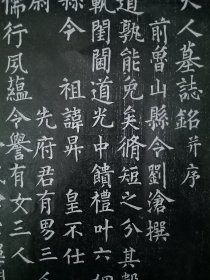 夫人墓誌銘并序
前曾山縣令劉滄撰
道孰能免矣脩短之分其
軌閨闈道光中饋禮叶六
縣令 祖諱昇 皇不仕
先府君有男三人
儒行夙蘊令譽有女三人